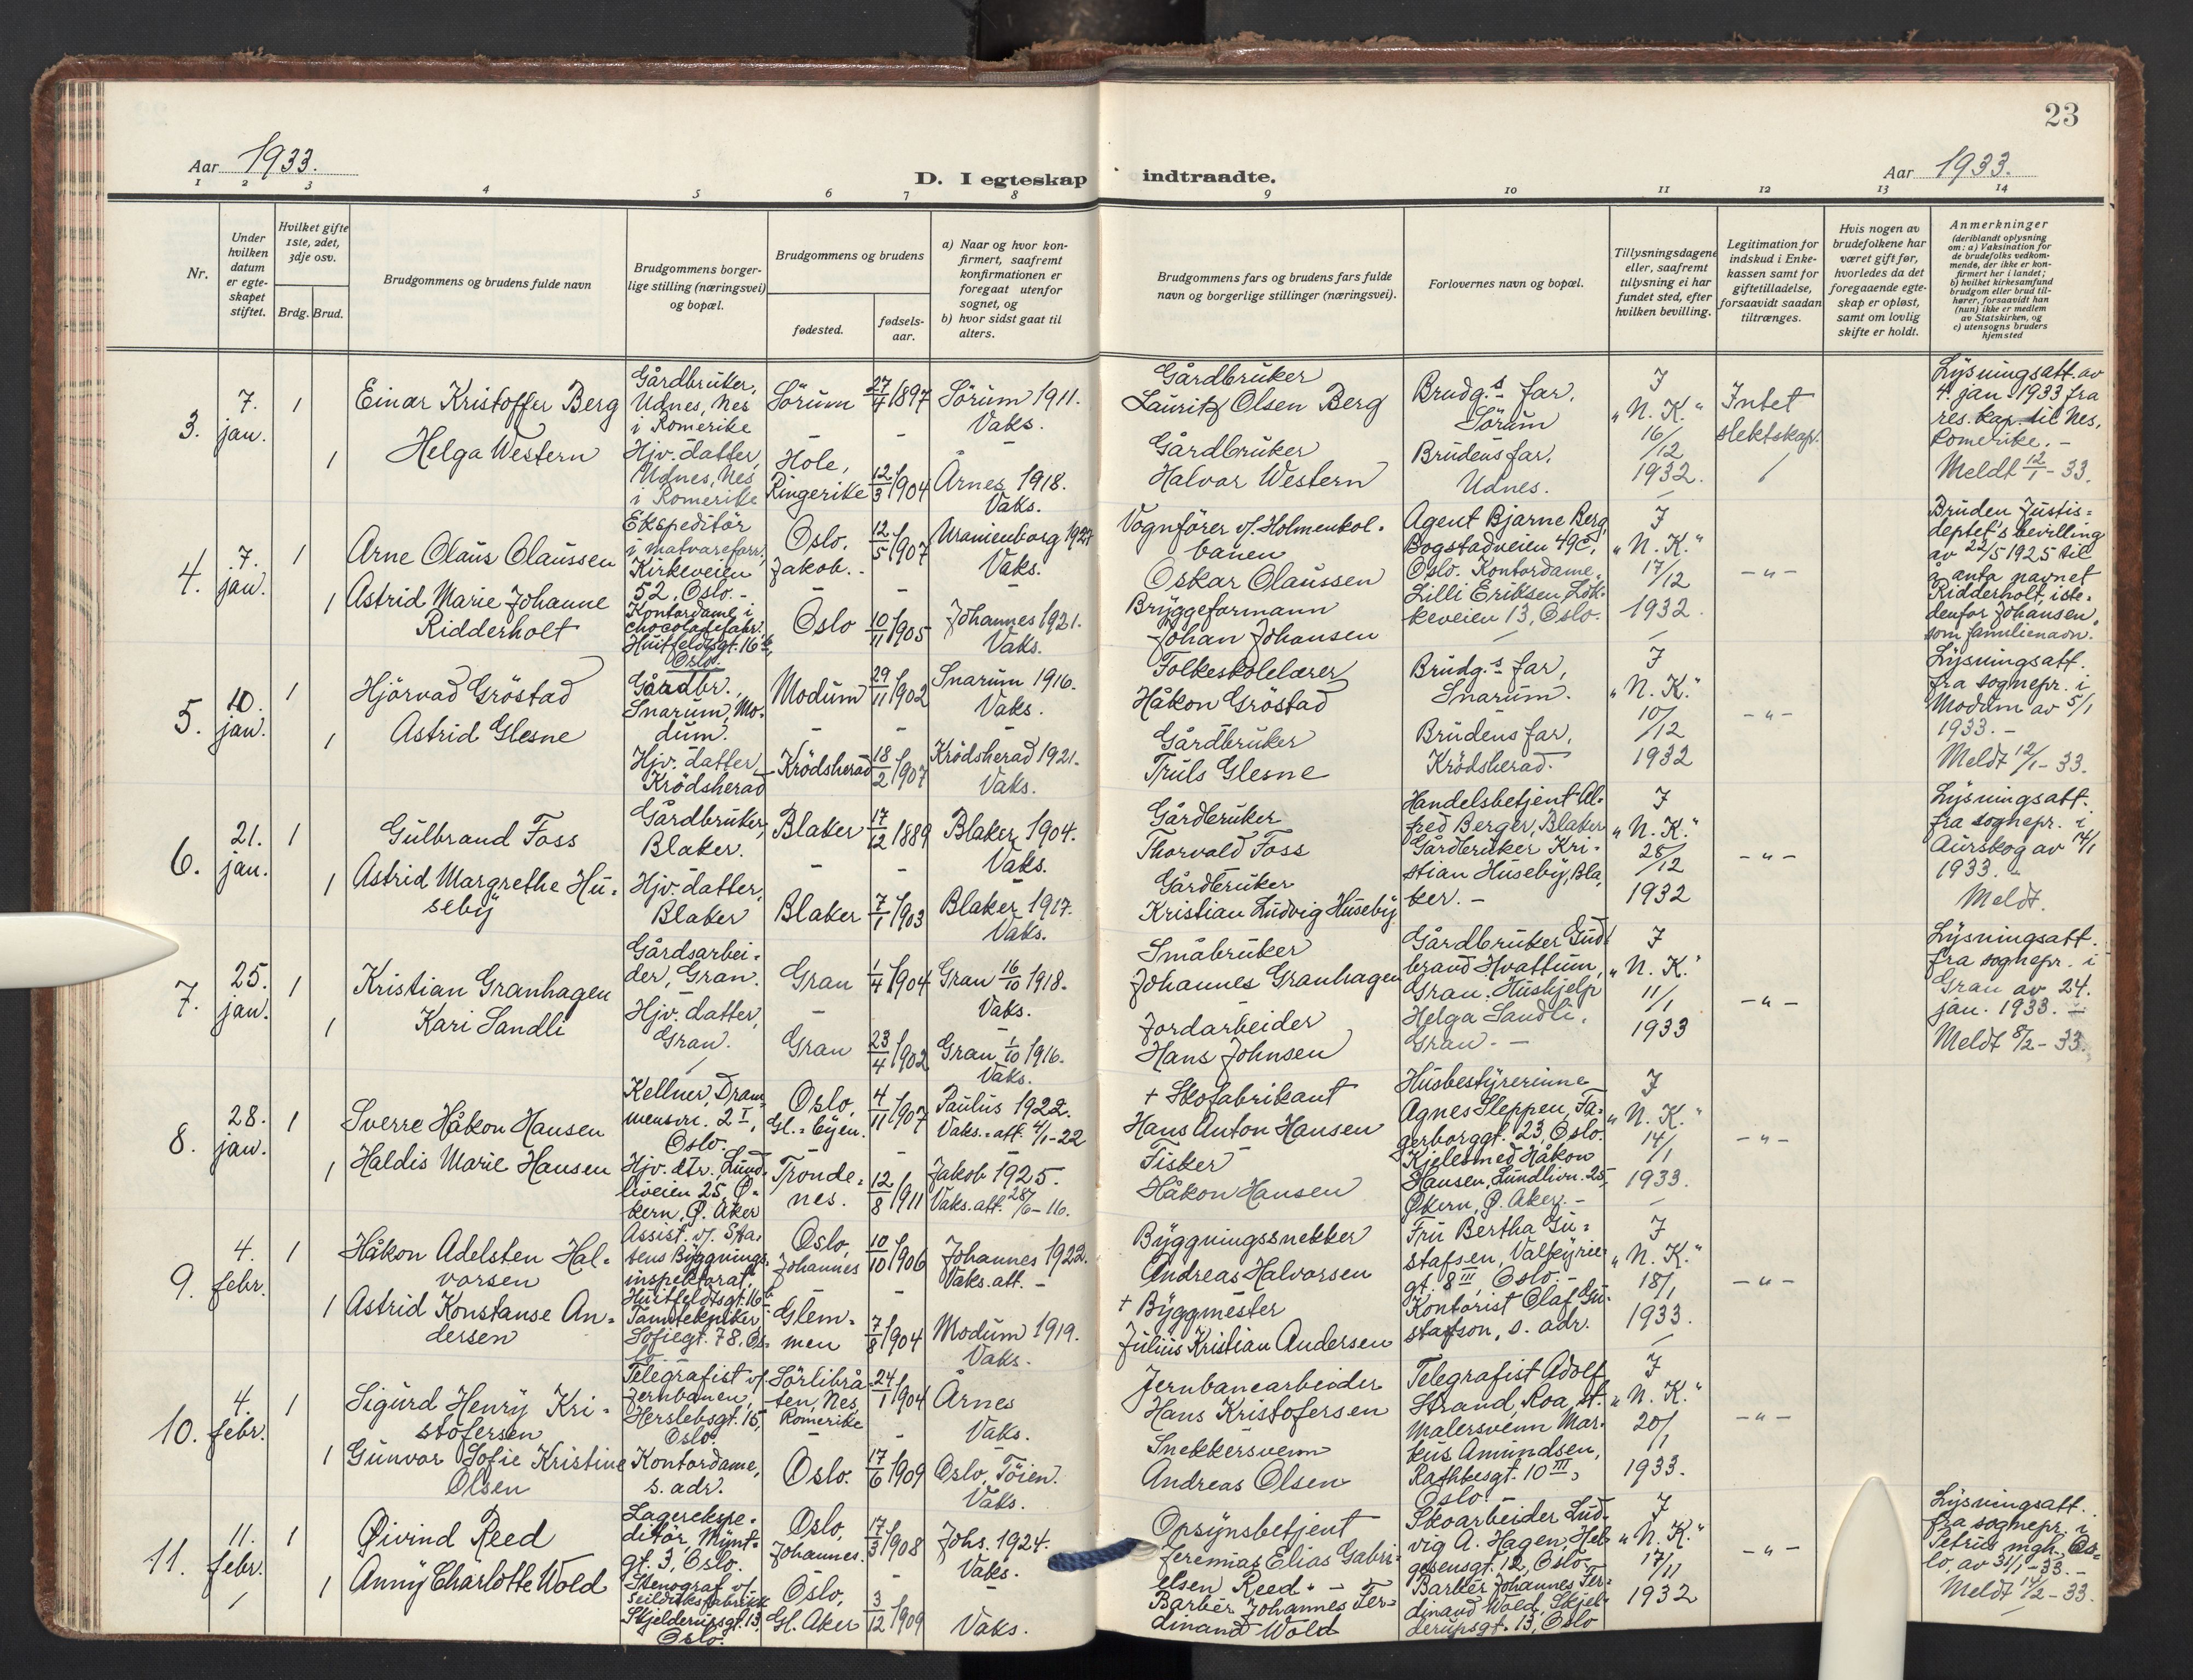 23
Aar 1933.
D. I egteskap indtraadte.
Aar 1933.
1 2 3 4 5 6 7 8 9 10 11 12 13 14
Nr.
Under
hvilken
datum
er egte-
skapet
stiftet.
Hvilket gifte
1ste, 2det,
3dje osv.
Brdg. Brud.
Brudgommens og brudens fulde navn
Brudgommens borger-
lige stilling (næringsvei)
og bopæl.
Brudgommens og brudens
fødested.
fødsels-
aar.
a) Naar og hvor kon-
firmert, saafremt
konfirmationen er
foregaat utenfor
sognet, og
b) hvor sidst gaat til
alters.
Brudgommens fars og brudens fars fulde
navn og borgerlige stillinger (næringsvei).
Forlovernes navn og bopæl.
Tillysningsdagene
eller, saafremt
tillysning ei har
fundet sted, efter
hvilken bevilling.
Legitimation for
indskud i Enke-
kassen samt for
giftetilladelse,
forsaavidt saadan
tiltrænges.
Hvis nogen av
brudefolkene har
været gift før,
hvorledes da det
foregaaende egte-
skap er opløst,
samt om lovlig
skifte er holdt.
Anmerkninger
(deriblandt oplysning
om: a) Vaksination for
de brudefolks vedkom-
mende, der ikke er kon-
firmert her i landet;
b) hvilket kirkesamfund
brudgom eller brud til-
hører, forsaavidt han
(hun) ikke er medlem
av Statskirken, og
c) utensogns bruders
hjemsted
3.
7.
jan.
1
Einar Kristoffer Berg
Gårdbruker,
Udnes, Nes
i Romerike
Sörum
27/4 1897
Sörum 1911.
Vaks.
Gårdbruker
Lauritz Olsen Berg
Brudg.s far,
Sörum
I
"N. K."
16/12
1932.
Intet
slektskap.
Lysningsatt. av
4. jan. 1933 fra
res. kap. til Nes,
Romerike. -
Meldt 12/1 - 33.
1
Helga Western
Hjv. datter,
Udnes, Nes
i Romerike
Hole,
Ringerike
12/3 1904
Årnes 1918.
Vaks.
Gårdbruker
Halvor Western
Brudens far,
Udnes.
4.
7.
jan.
1
Arne Olaus Olaussen
Ekspeditör
i matvareforr.,
Kirkeveien
52, Oslo. -
Oslo,
Jakob. -
12/5 1907
Uranienborg 1921
Vaks.
Vognförer v/ Holmenkol-
banen
Oskar Olaussen
Agent Bjarne Berg
Bogstadveien 49c,
Oslo. Kontordame,
Lilli Eriksen, Lök-
keveien 13, Oslo.
I
"N. K."
17/12
1932.
- " -
Bruden Justis-
deptet's bevilling
av 22/5 1925 til
å anta navnet
Ridderholt, iste-
denfor Johansen,
som familienavn.
1
Astrid Marie Johanne
Ridderholt
Kontordame i
chocoladefabr.
Huitfeldtsgt. 16b,
Oslo.
Oslo
10/11 1905
Johannes 1921.
Vaks.
Bryggeformann
Johan Johansen
5.
10.
jan.
1
Hjörvad Gröstad
Gårdbr.,
Snarum, Mo-
dum.
Modum
29/11 1902
Snarum 1916.
Vaks.
Folkeskolelærer
Håkon Gröstad
Brudg.s far,
Snarum.
I
"N. K."
10/12
1932
- " -
Lysningsatt.
fra sognepr. i
Modum av 5/1
1933. -
Meldt 12/1 - 33.
1
Astrid Glesne
Hjv. datter,
Krödsherad
Krödsherad
18/2 1907
Krödsherad 1921.
Vaks.
Gårdbruker
Truls Glesne
Brudens far,
Krödsherad.
6.
21.
jan.
1
Gulbrand Foss
Gårdbruker,
Blaker.
Blaker
17/12 1889
Blaker 1904.
Vaks.
Gårdbruker
Thorvald Foss
Handelsbetjent Al-
fred Berger, Blaker
Gårdbruker Kri-
stian Huseby, Bla-
ker. -
I
"N. K."
28/12
1932
- " -
Lysningsatt.
fra sognepr. i
Aurskog av 14/1
1933. -
Meldt.
1
Astrid Margrethe Hu-
seby
Hjv. datter,
Blaker
Blaker
7/1 1903
Blaker 1917.
Vaks.
Gårdbruker
Kristian Ludvig Huseby
7.
25.
jan.
1
Kristian Granhagen
Gårdsarbei-
der, Gran.
Gran
1/4 1904
Gran 16/10 1918.
Vaks.
Småbruker
Johannes Granhagen
Gårdbruker Gud-
brand Hvattum,
Gran. Hushjelp
Helga Sandli,
Gran. -
I
"N. K."
11/1
1933
- " -
Lysningsatt.
fra sognepr. i
Gran av 24.
jan. 1933. -
Meldt 8/2 - 33.
1
Kari Sandli
Hjv. datter,
Gran.
Gran
23/4 1902
Gran 1/10 1916.
Vaks.
Jordarbeider
Hans Johnsen
8.
28.
jan.
1
Sverre Håkon Hansen
Kellner, Dram-
mensvei. 2 I,
Oslo.
Oslo,
Gl.-byen.
4/11 1907
Paulus 1922.
Vaks.-att. 4/1-22
+ Skofabrikant
Hans Anton Hansen
Husbestyrerinne
Agnes Sleppen, Fa-
gerborggt. 23, Oslo.
Kjelesmed Håkon
Hansen, Lundlivn. 25,
Økern, Ø. Aker. -
I
"N. K."
14/1
1933.
- " -
1
Haldis Marie Hansen
Hjv. dtr., Lund-
liveien 25, Ø-
kern, Ø. Aker
Tronde-
nes.
12/8 1911
Jakob 1925.
Vaks. att. 28/6 - 16.
Fisker
Håkon Hansen
9.
4.
febr.
1
Håkon Adelsten Hal-
vorsen
Assist. v/ Sta-
tens Bygnings-
inspektorat,
Huitfeldtsgt. 16b
Oslo,
Johannes
10/10 1906
Johannes 1922.
Vaks. att. -
Byggningssnekker
Andreas Halvorsen
Fru Bertha Gu-
stafsen, Valkyrie-
gt. 8 III, Oslo. -
Kontorist Olaf Gu-
stafson, s. adr.
I
"N. K."
18/1
1933.
- " -
1
Astrid Konstanse An-
dersen
Tanntekniker
Sofiegt. 78, Os-
lo
Glem-
men
7/8 1904
Modum 1919.
Vaks.
+ Byggmester
Julius Kristian Andersen
10.
4.
febr.
1
Sigurd Henry Kri-
stofersen
Telegrafist v/
Jernbanen,
Herslebsgt. 15,
Oslo.
Sörlibrå-
ten, Nes,
Romerike
24/1 1904
Årnes
Vaks.
Jernbanearbeider
Hans Kristofersen
Telegrafist Adolf
Strand, Roa, st.
Malersvenn Mar-
kus Amundsen,
Rathkesgt. 10 III,
Oslo.
I
"N. K."
20/1
1933.
- " -
1
Gunvor Sofie Kristine
Olsen
Kontordame,
s. adr.
Oslo.
17/6 1909
Oslo, Töien.
Vaks.
Snekkersvenn
Andreas Olsen
11.
11.
febr.
1
Øivind Reed
Lagerekspe-
ditör, Mynt-
gt. 3, Oslo.
Oslo,
Johannes.
17/3 1908
Johs. 1924.
Vaks.
Opsynsbetjent
Jeremias Elias Gabri-
elsen Reed. -
Skoarbeider Lud-
vig A. Hagen, Hel-
gesensgt. 12, Oslo.
Barber Johannes Fer-
dinand Wold, Skjel-
derupsgt. 13, Oslo
I
"N. K."
17/11
1932
- " -
Lysningsatt.
fra sognepr. i
Petrus mgh., Os-
lo, av 31/1 - 33. -
Meldt 14/2 - 33.
1
Anny Charlotte Wold
Stenograf v/
Seilduksfabrikk
Skjelderupsgt. 13,
Oslo.
Oslo,
Gl. Aker
3/12 1909
Vaks.
Barber Johannes Fer-
dinand Wold